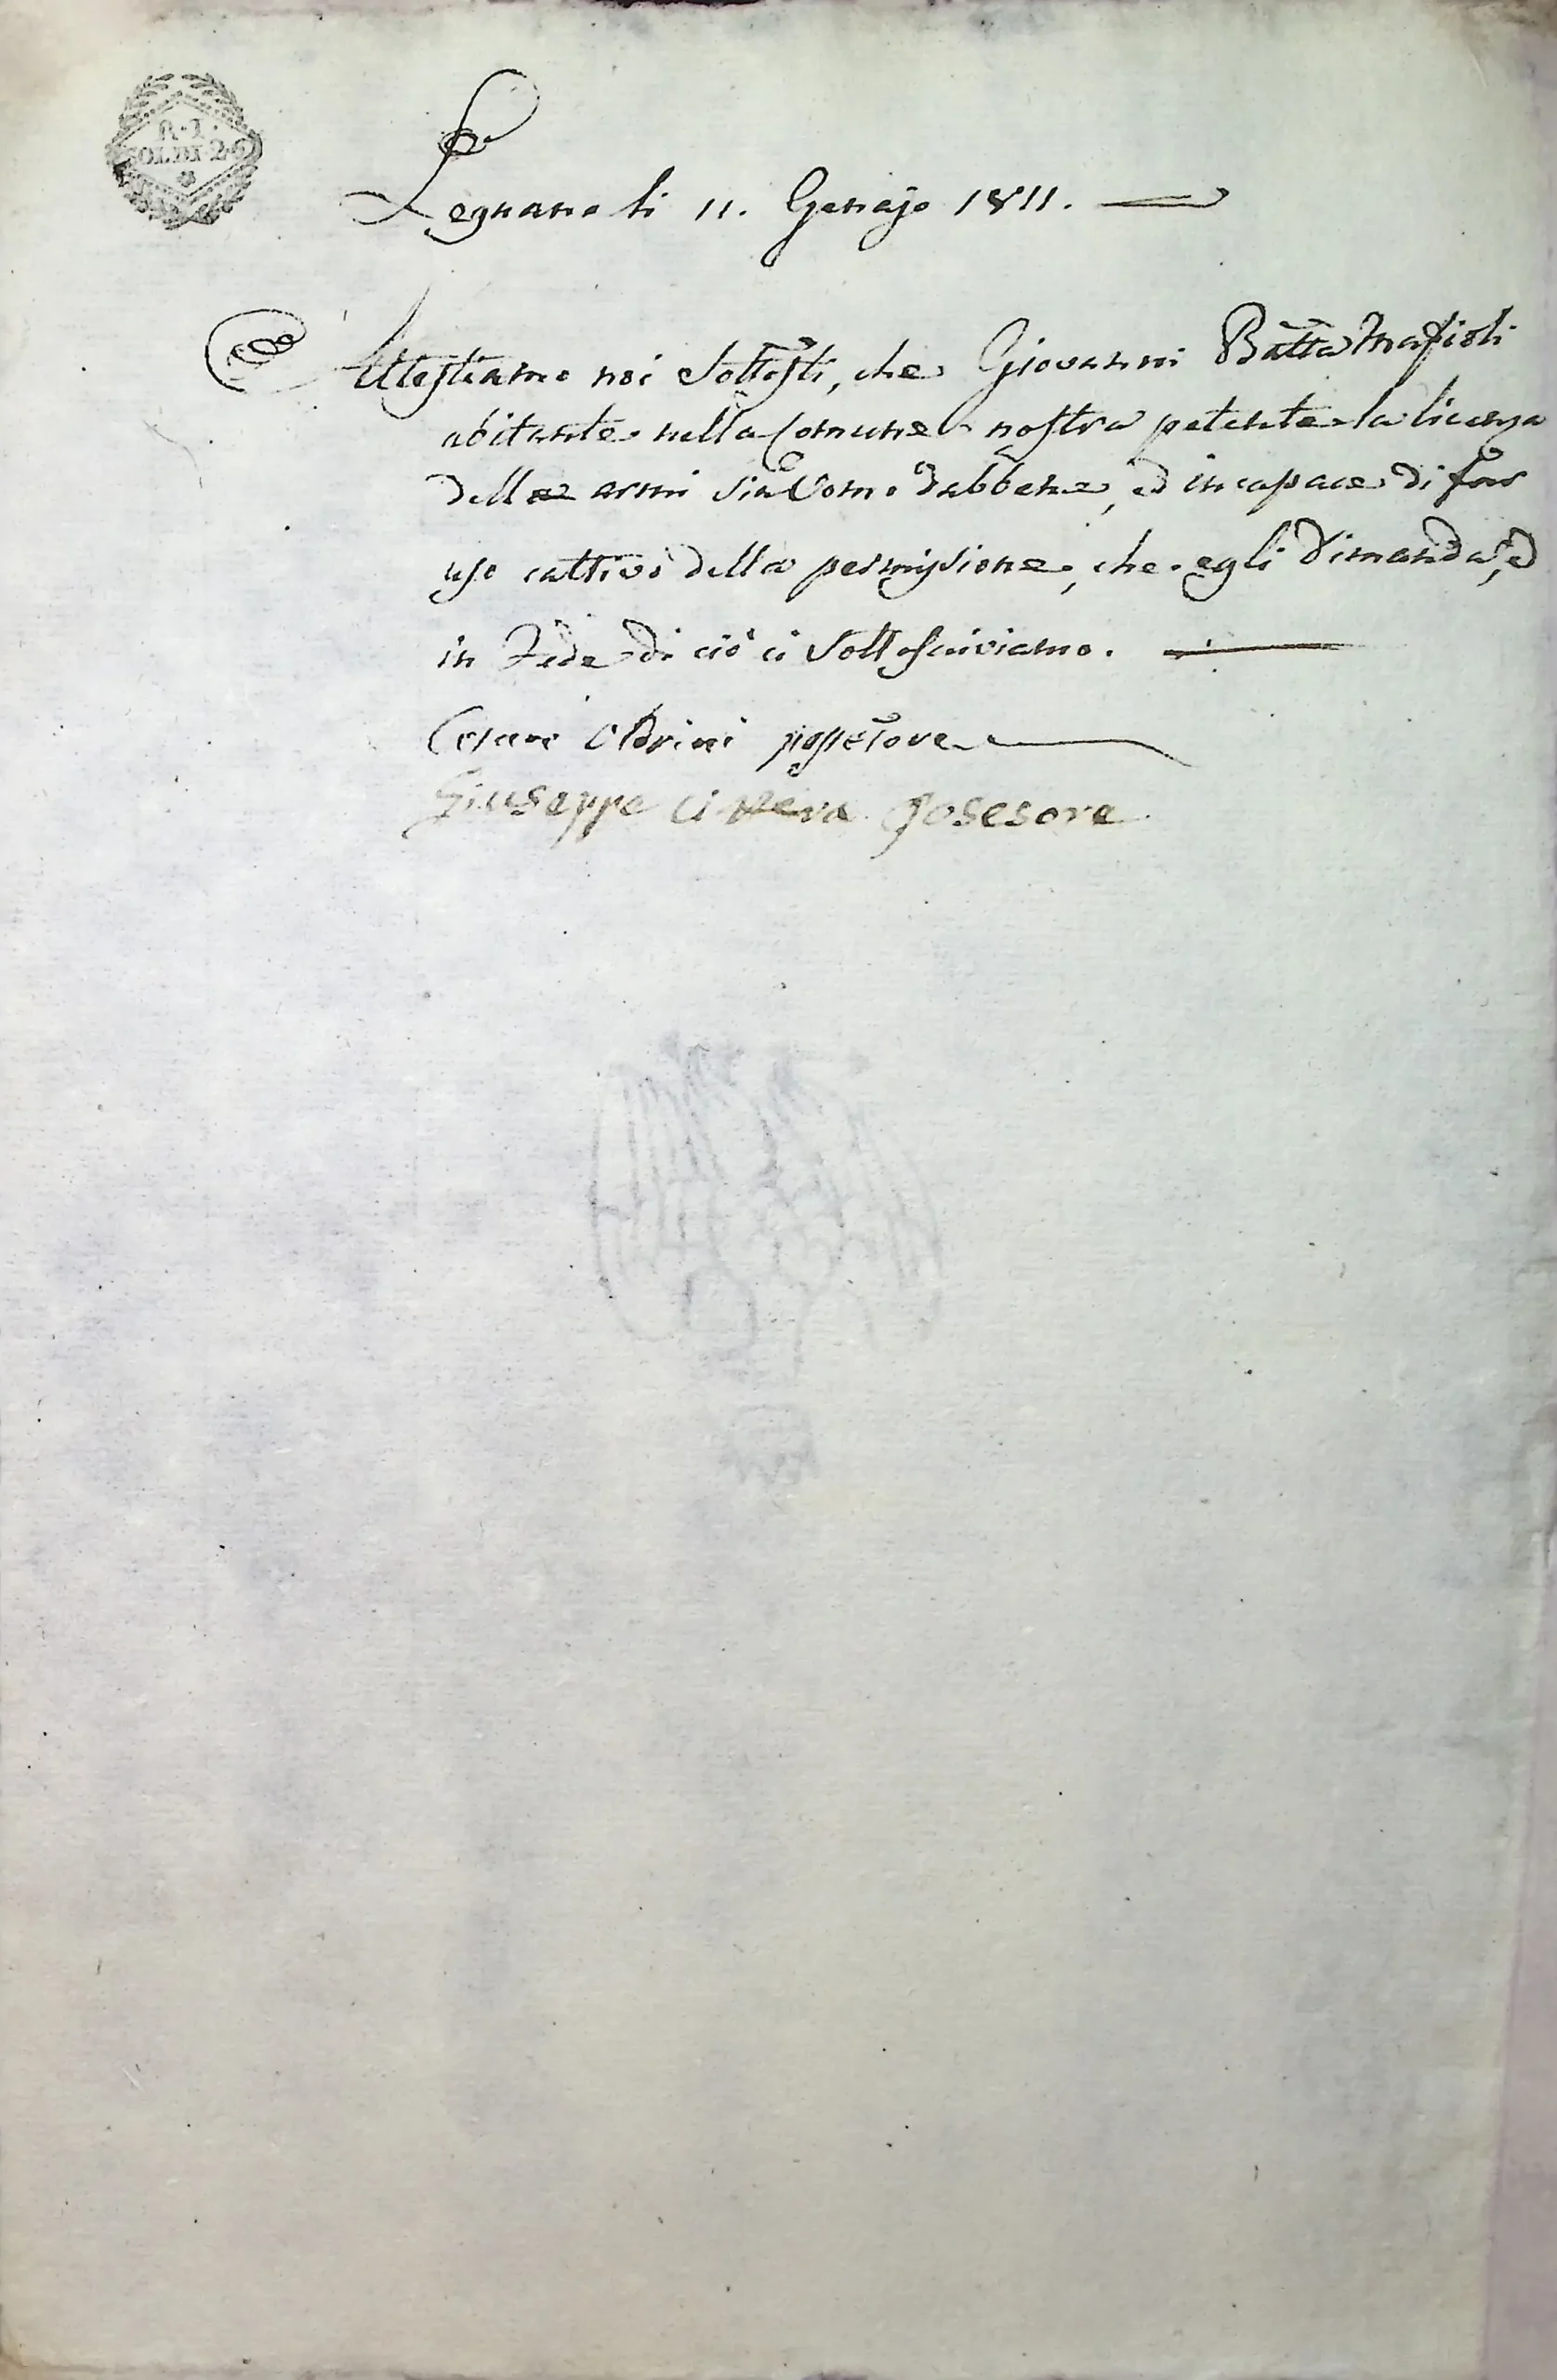 R. I.
SOLDI 26
Legnano li 11. Genajo 1811.
Attestiamo noi Sottosti, che Giovanni Batta Mafioli
abitante nella Comune nostra petente la licenza
delle armi sia Uomo dabbene, ed incapace di far
uso cattivo della permissione, che egli dimanda, ed
in Fede di ciò ci Sottoscriviamo.
Cesare Oldrini possesore
Giuseppe posesore